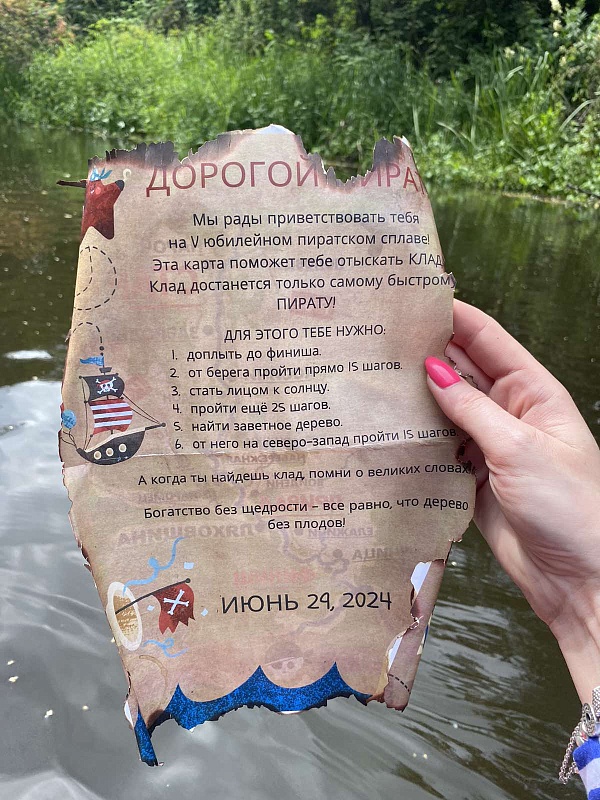 ДОРОГОЙ ПИРАТ
Мы рады приветствовать тебя
на V юбилейном пиратском сплаве!
Эта карта поможет тебе отыскать КЛАД.
Клад достанется только самому быстрому
ПИРАТУ!
ДЛЯ ЭТОГО ТЕБЕ НУЖНО:
1. доплыть до финиша.
2. от берега пройти прямо 15 шагов.
3. стать лицом к солнцу.
4. пройти ещё 25 шагов.
5. найти заветное дерево.
6. от него на северо-запад пройти 15 шагов
А когда ты найдешь клад, помни о великих словах:
Богатство без щедрости – все равно, что дерево
без плодов!
ИЮНЬ 29, 2024